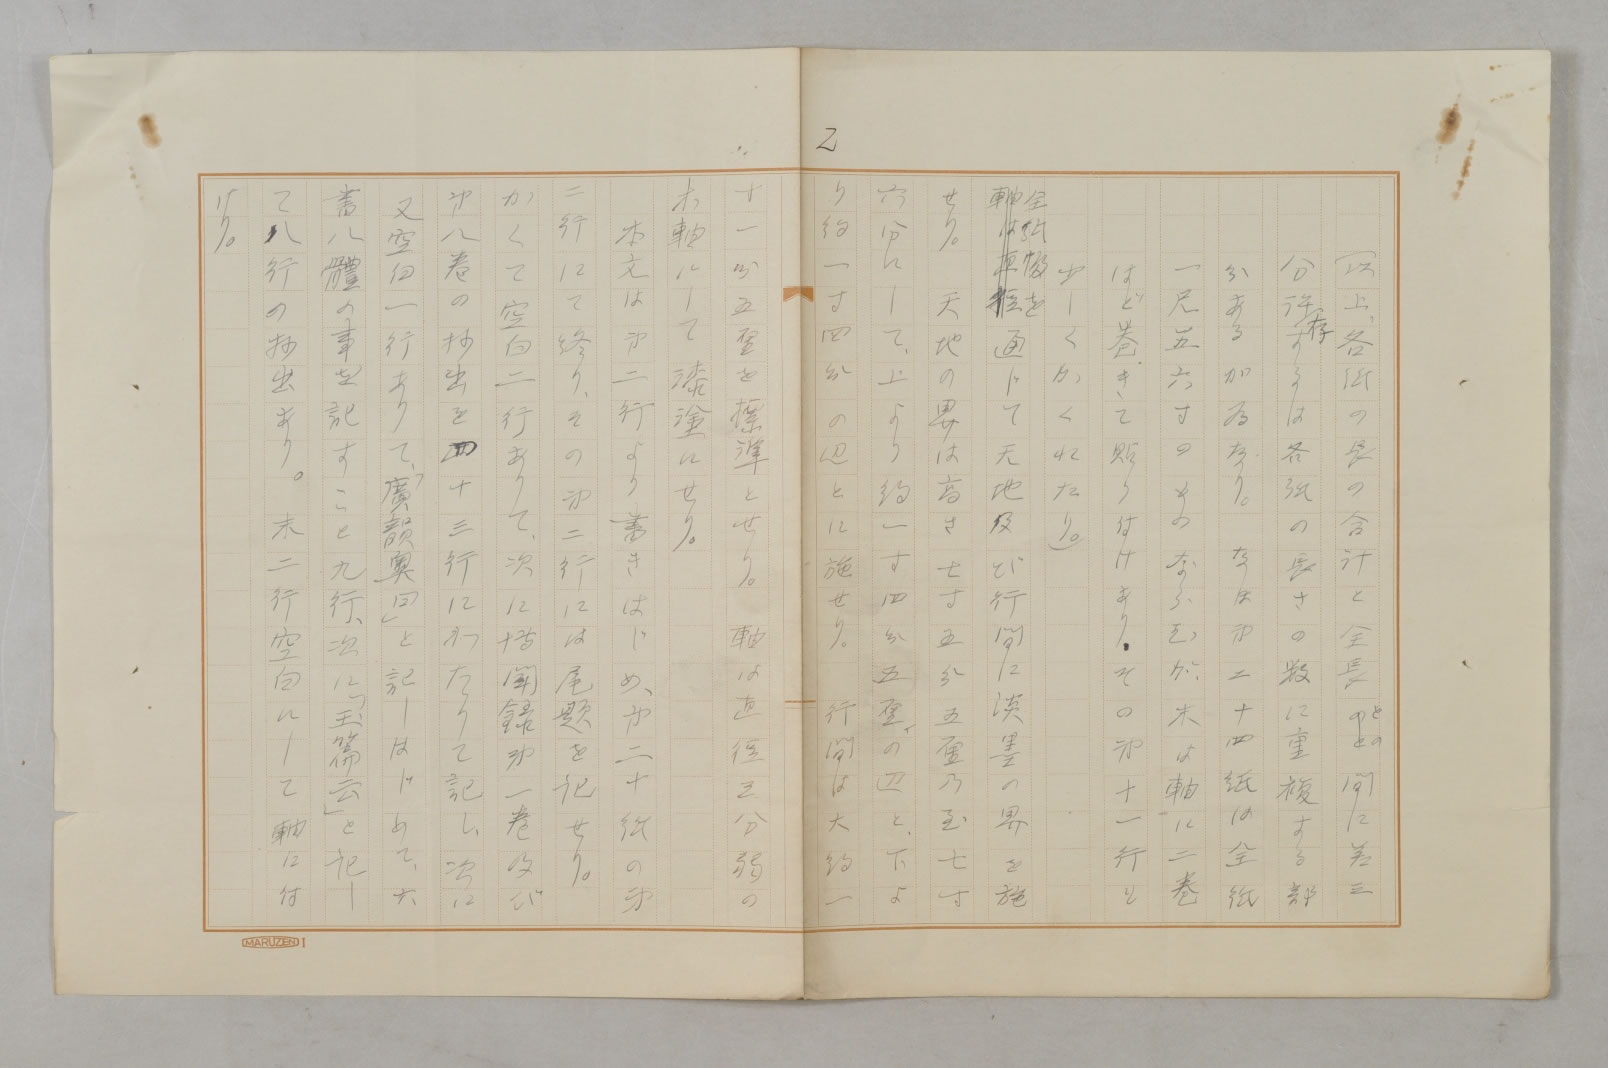 2
（以上、各紙の長の合計と全長との間に差三
分許存するは各紙の長さの数に重複する部
分あるが為なり。なほ第二十四紙は全紙
一尺五六寸のものならむが、末は軸に二巻
ほど巻きて貼り付けあり。その第十一行を
少しくかくれたり。）
全紙幅を
軸は直径通じて天地及び行間に淡墨の界を施
せり。天地の界は高さ七寸五分五厘乃至七寸
六分にして、上より約一寸四分五厘の辺と、下よ
り約一寸四分の辺とに施せり。行間は大約一
寸一分五厘を標準とせり。軸は直径三分弱の
木軸にして漆塗にせり。
本文は第二行より書きはじめ、第二十紙の第
二行にて終り、その第二行には尾題を記せり。
かくて空白二行ありて、次に揩聞録第一巻及び
第八巻の抄出を四十三行にわたりて記し、次に
又空白一行ありて、「廣韻奥曰」と記しはじめて、六
書八體の事を記すこと九行、次に「玉篇云」と記し
て八行の抄出あり。末二行空白にして軸に付
けり。
MARUZEN I